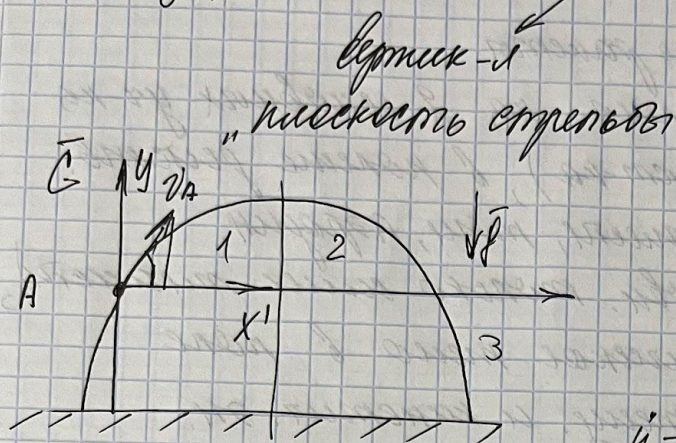 вертик-я
" плоскость стрельбы
G̅ y v_A
1 2 g̅
A
X'
3